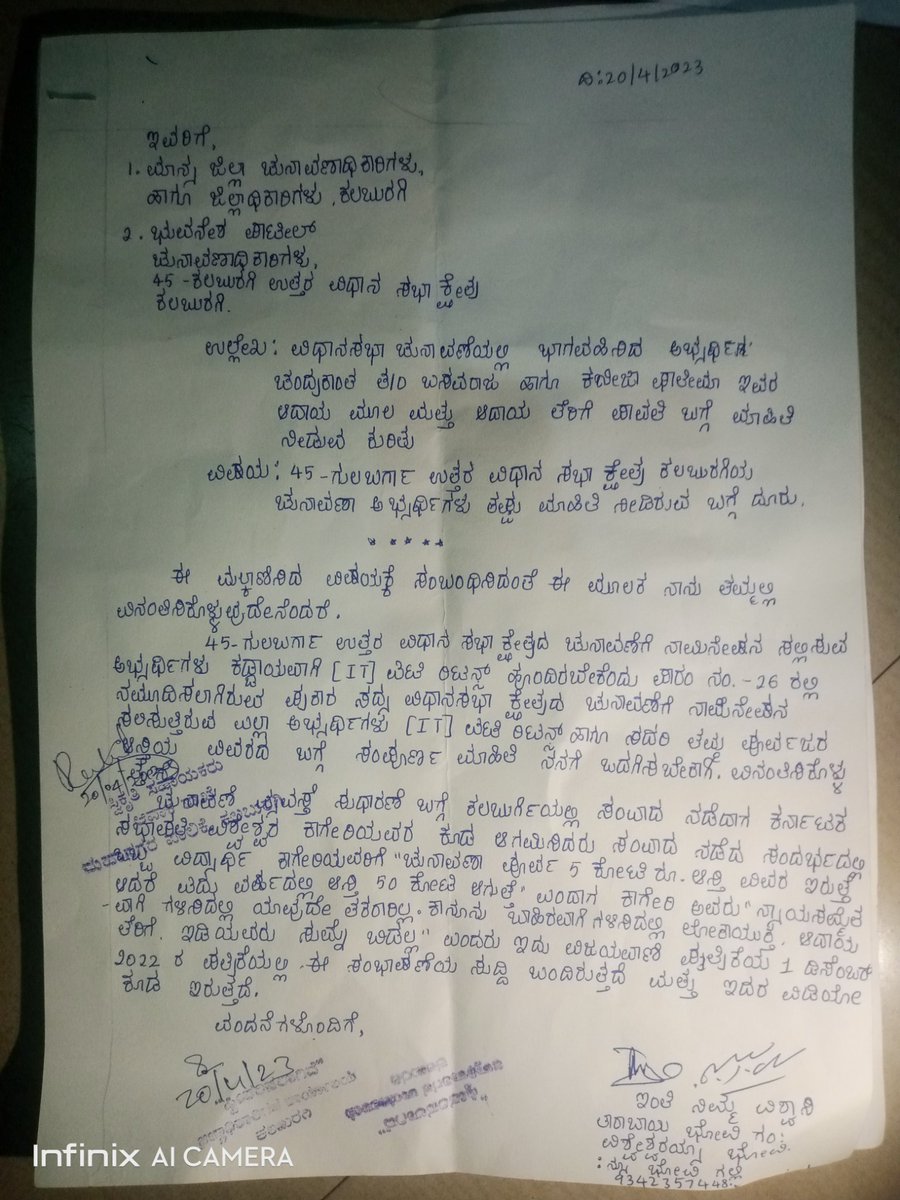 ದಿ:20/4/2023
ಇವರಿಗೆ,
1. ಮಾನ್ಯ ಜಿಲ್ಲಾ ಚುನಾವಣಾಧಿಕಾರಿಗಳು,
ಹಾಗೂ ಜಿಲ್ಲಾಧಿಕಾರಿಗಳು, ಕಲಬುರಗಿ
2. ಭುವನೇಶ ಪಾಟೀಲ್
ಚುನಾವಣಾಧಿಕಾರಿಗಳು,
45-ಕಲಬುರಗಿ ಉತ್ತರ ವಿಧಾನ ಸಭಾ ಕ್ಷೇತ್ರ
ಕಲಬುರಗಿ.
ಉಲ್ಲೇಖ: ವಿಧಾನಸಭಾ ಚುನಾವಣೆಯಲ್ಲಿ ಭಾಗವಹಿಸಿದ ಅಭ್ಯರ್ಥಿಗ
ಚಂದ್ರಕಾಂತ ತ/o ಬಸವರಾಜ ಹಾಗೂ ಕನೀಜಾ ಫಾತೀಮಾ ಇವರ
ಆದಾಯ ಮೂಲ ಮತ್ತು ಆದಾಯ ತೆರಿಗೆ ಪಾವತಿ ಬಗ್ಗೆ ಮಾಹಿತಿ
ನೀಡುವ ಕುರಿತು
ವಿಷಯ: 45-ಗುಲಬರ್ಗಾ ಉತ್ತರ ವಿಧಾನ ಸಭಾ ಕ್ಷೇತ್ರ ಕಲಬುರಗಿಯ
ಚುನಾವಣಾ ಅಭ್ಯರ್ಥಿಗಳು ತಪ್ಪು ಮಾಹಿತಿ ನೀಡಿರುವ ಬಗ್ಗೆ ದೂರು.
* * * * *
ಈ ಮೇಲ್ಕಾಣಿಸಿದ ವಿಷಯಕ್ಕೆ ಸಂಬಂಧಿಸಿದಂತೆ ಈ ಮೂಲಕ ನಾನು ತಮ್ಮಲ್ಲಿ
ವಿನಂತಿಸಿಕೊಳ್ಳುವುದೇನೆಂದರೆ.
45-ಗುಲಬರ್ಗಾ ಉತ್ತರ ವಿಧಾನ ಸಭಾ ಕ್ಷೇತ್ರದ ಚುನಾವಣೆಗೆ ನಾಮಿನೇಷನ ಸಲ್ಲಿಸುವ
ಅಭ್ಯರ್ಥಿಗಳು ಕಡ್ಡಾಯವಾಗಿ [IT] ಐಟಿ ರಿಟರ್ನ್ಸ್ ಹೊಂದಿರಬೇಕೆಂದು ಫಾರಂ ನಂ.-26 ರಲ್ಲಿ
ನಮೂದಿಸಲಾಗಿರುವ ಪ್ರಕಾರ ಸದ್ರಿ ವಿಧಾನಸಭಾ ಕ್ಷೇತ್ರದ ಚುನಾವಣೆಗೆ ನಾಮಿನೇಷನ
ಸಲಿಸುತ್ತಿರುವ ಎಲ್ಲಾ ಅಭ್ಯರ್ಥಿಗಳು [IT] ಐಟಿ ರಿಟರ್ನ್ಸ್ ಹಾಗೂ ಸದರಿ ತಮ್ಮ ಪೂರ್ವಜರ
ಆಸ್ತಿಯ ವಿವರದ ಬಗ್ಗೆ ಸಂಪೂರ್ಣ ಮಾಹಿತಿ ನನಗೆ ಒದಗಿಸಬೇಕಾಗಿ. ವಿನಂತಿಸಿಕೊಳ್ಳು
20/04/
ಚುನಾವಣೆ ವ್ಯವಸ್ಥೆ ಸುಧಾರಣೆ ಬಗ್ಗೆ ಕಲಬುರ್ಗಿಯಲ್ಲಿ ಸಂವಾದ ನಡೆದಾಗ ಕರ್ನಾಟಕ
ಸಭಾಪತಿ ವಿಶ್ವೇಶ್ವರ ಕಾಗೇರಿಯವರ ಕೂಡ ಆಗಮಿಸಿದರು ಸಂವಾದ ನಡೆದ ಸಂದರ್ಭದಲ್ಲಿ
ಒಬ್ಬ ವಿದ್ಯಾರ್ಥಿ ಕಾಗೇರಿಯವರಿಗೆ "ಚುನಾವಣಾ ಪೂರ್ವ 5 ಕೋಟಿ ರೂ. ಆಸ್ತಿ ವಿವರ ಇರುತ್ತೆ
ಆದರೆ ಐದು ವರ್ಷದಲ್ಲಿ ಆಸ್ತಿ 50 ಕೋಟಿ ಆಗುತ್ತೆ" ಎಂದಾಗ ಕಾಗೇರಿ ಅವರು "ನ್ಯಾಯಸಮ್ಮತ
-ವಾಗಿ ಗಳಿಸಿದಲ್ಲಿ ಯಾವುದೇ ತಕರಾರಿಲ್ಲ. ಕಾನೂನು ಬಾಹಿರವಾಗಿ ಗಳಿಸಿದಲ್ಲಿ ಲೋಕಾಯುಕ್ತ, ಆದಾಯ
ತೆರಿಗೆ. ಇಡಿಯವರು ಸುಮ್ನೆ ಬಿಡಲ್ಲ" ಎಂದರು ಇದು ವಿಜಯವಾಣಿ ಪತ್ರಿಕೆಯ 1 ಡಿಸೆಂಬರ್
2022 ರ ಪತ್ರಿಕೆಯಲ್ಲಿ ಈ ಸಂಭಾಷಣೆಯ ಸುದ್ದಿ ಬಂದಿರುತ್ತದೆ ಮತ್ತು ಇದರ ವಿಡಿಯೋ
ಕೂಡ ಇರುತ್ತದೆ.
ವಂದನೆಗಳೊಂದಿಗೆ,
20/4/23
ಕಲಬುರಗಿ
ಇಂತಿ ನಿಮ್ಮ ವಿಶ್ವಾಸಿ
ತಾರಾಬಾಯಿ ಭೋವಿ ಗಂ:
ವಿಶ್ವೇಶ್ವರಯ್ಯಾ ಭೋವಿ.
ಭೋವಿ ಗಲ್ಲಿ
9342357448
Infinix AI CAMERA